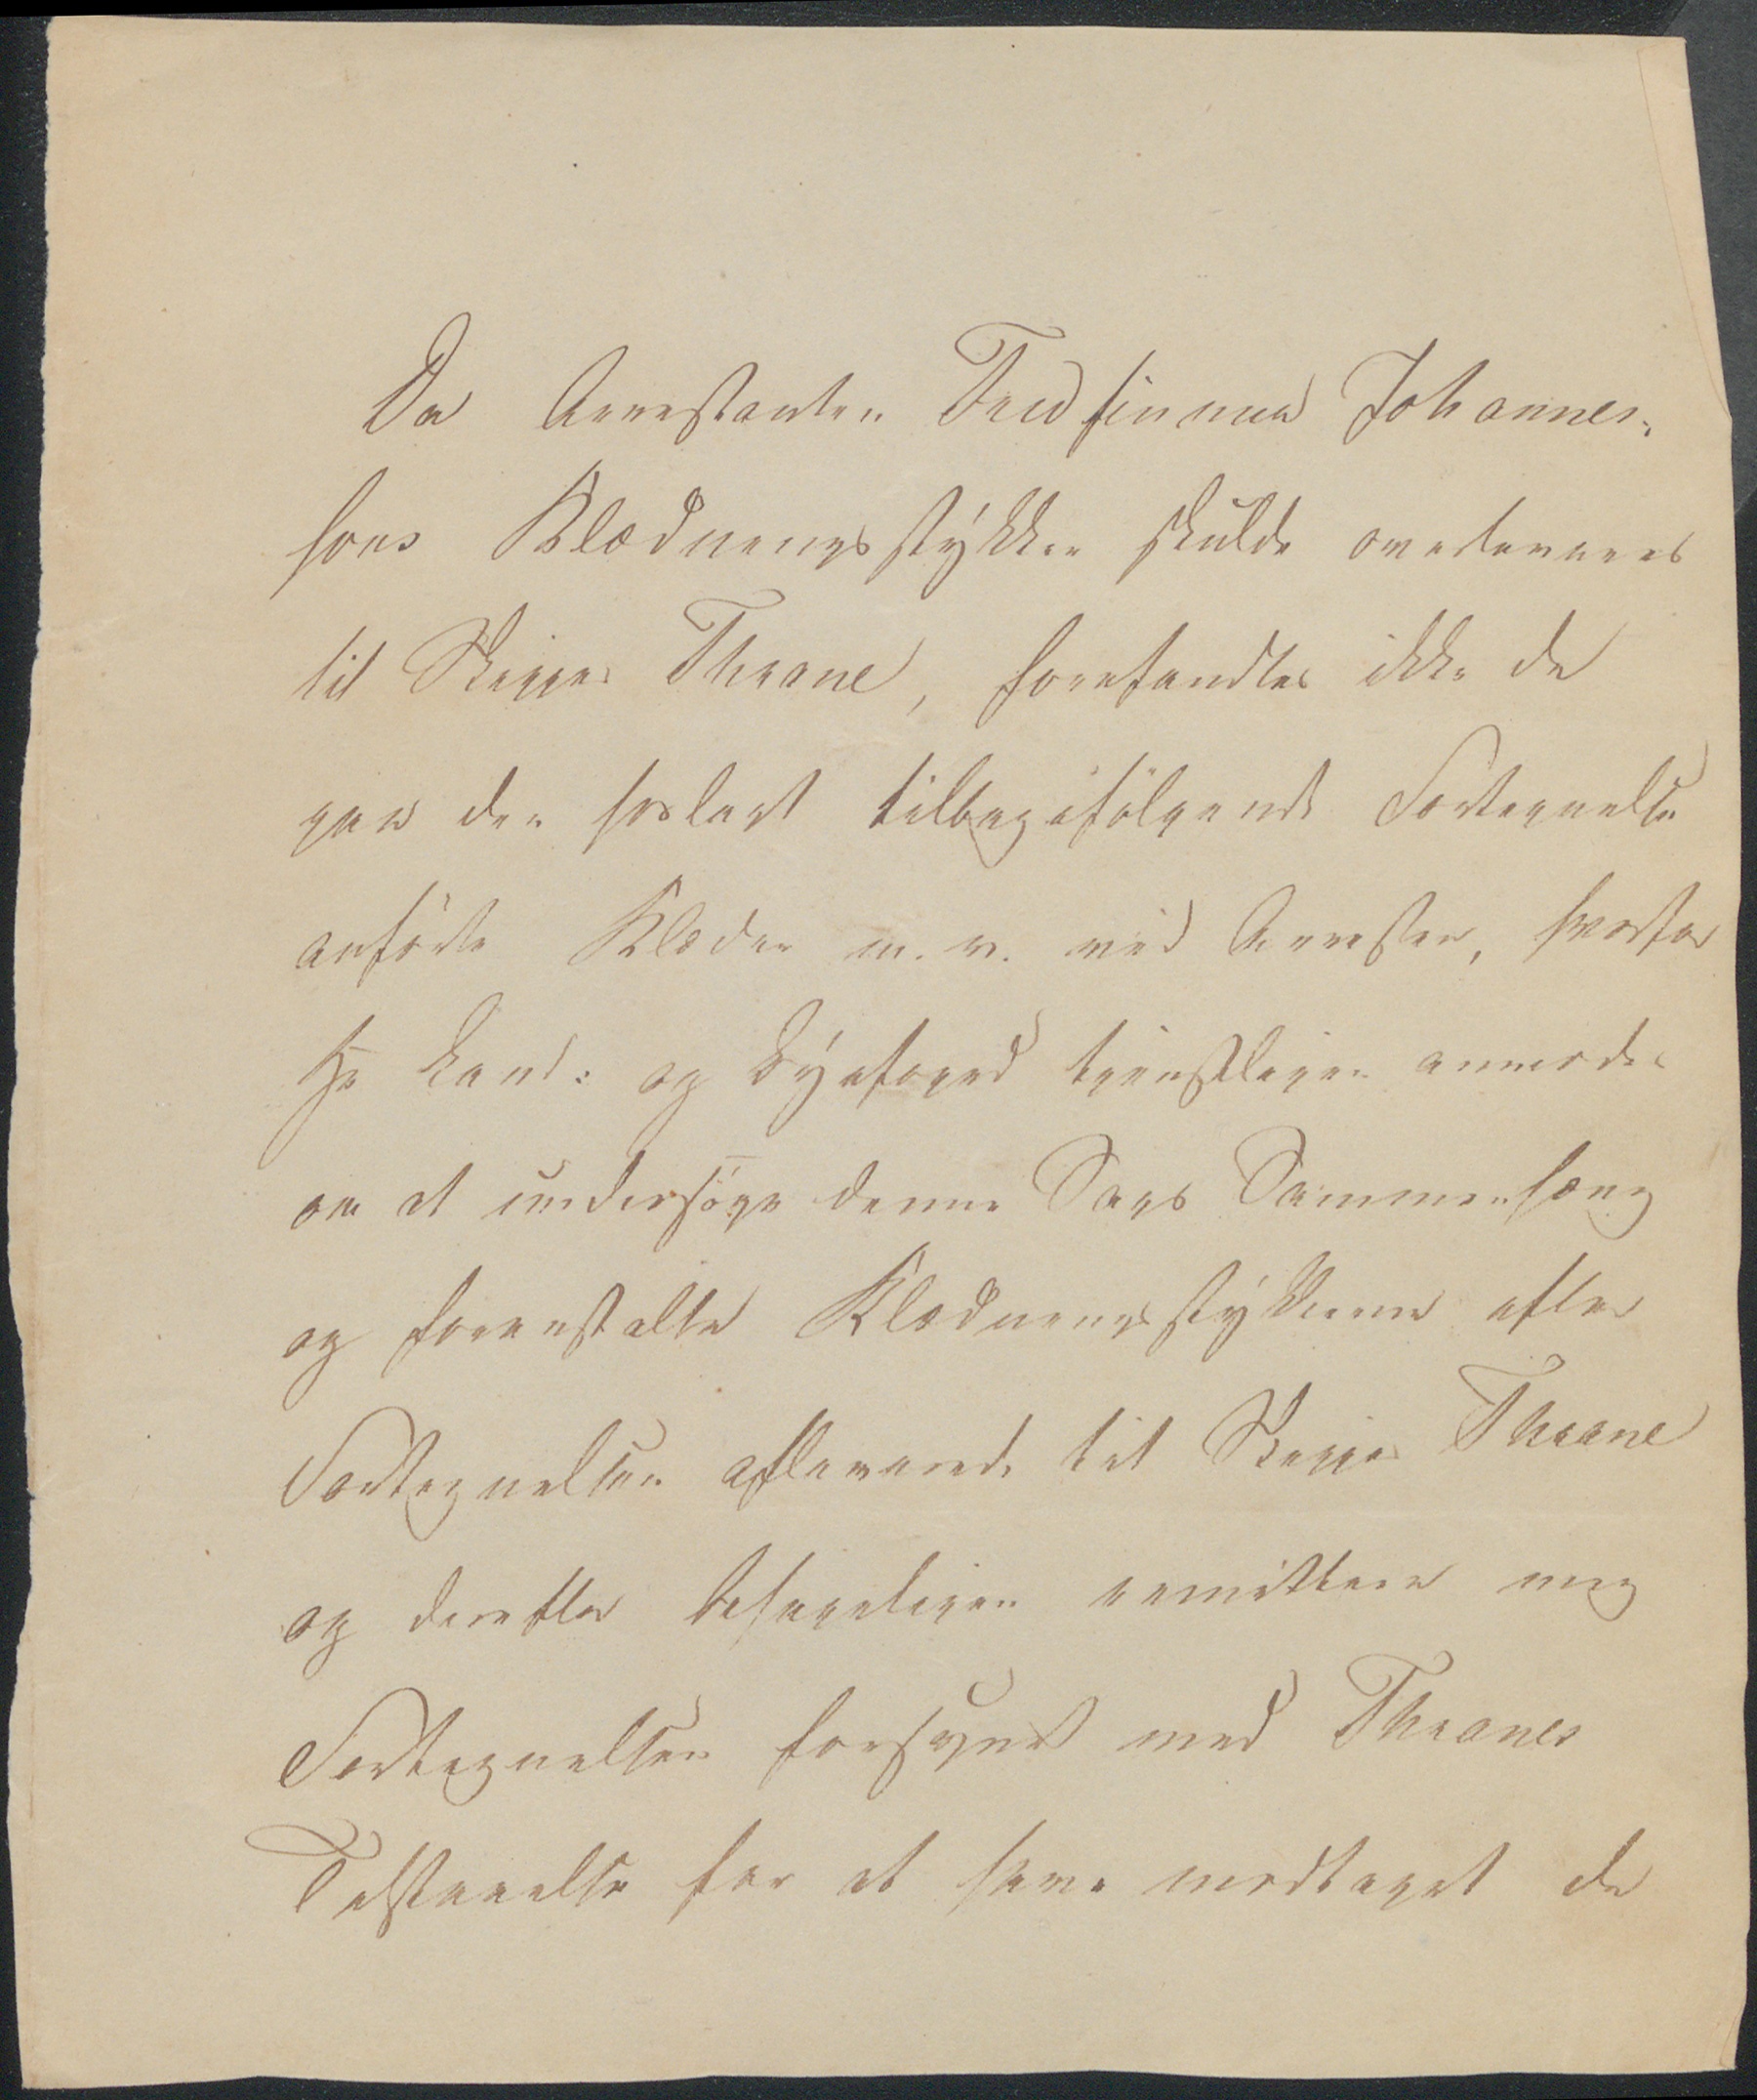 Da Arrestanten Fridfinnur Johannes-
sons Klædningsstykker skulde overleveres
til Skipper Thrane, forefandtes ikke de
paa den hoslagt tilbagefölgende Fortegnelse
anförte Klæder m. v. ved Arresten, hvorfor
Hr Land: og Byefoged tjenstligen anmodes
om at undersöge denne Sags Sammenhæng
og foranstalte Klædningsstykkerne efter
Fortegnelsen afleverede til Skipper Thrane
og derefter behageligen remittere mig
Fortegnelsen forsynet med Thranes
Tilstaaelse for at have modtaget de